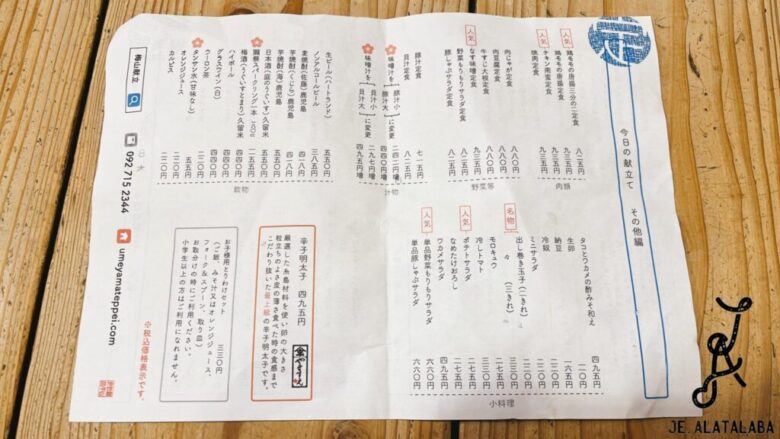 今日の献立て その他編
人気
鶏ももの唐揚三分の二定食 八二五円
鶏ももの唐揚定食 九三五円
人気
チキン南蛮定食 九三五円
焼肉定食 九三五円
肉類
肉じゃが定食 八八〇円
肉豆腐定食 八八〇円
牛すじ大根定食 九三五円
なす味噌定食
人気
野菜もりもりサラダ定食 八二五円
豚しゃぶサラダ定食 八二五円
野菜等
豚汁定食 七一五円
貝汁定食
味噌汁を 豚汁小 豚汁大 に変更
味噌汁を 貝汁小 貝汁大 に変更 二九七円増 四九五円増
汁物
生ビール(ハートランド) 五五〇円
ノンアルコールビール 三八五円
麦焼酎(佐藤)鹿児島 四一八円
芋焼酎(くじら)鹿児島 四一八円
芋焼酎(海)鹿児島
日本酒(庭のうぐいす)久留米 五五〇円
獺祭スパークリング
梅酒(うぐいすとまり)久留米 四四〇円
ハイボール 四四〇円
グラスワイン(白) 四四〇円
ウーロン茶 二二〇円
タンサン水(甘味なし) 五五円
オレンジジュース 二二〇円
カルピス 二二〇円
飲物
タコとワカメの酢みそ和え 四九五円
生卵 一一〇円
納豆 一六五円
冷奴
ミニサラダ
名物
出し巻き玉子(二きれ) 二二〇円
々 (三きれ) 三三〇円
モロキュウ
冷しトマト 二七五円
人気
ポテトサラダ 二七五円
なめたけおろし 二七五円
ワカメサラダ 四九五円
人気
単品野菜もりもりサラダ 六六〇円
単品豚しゃぶサラダ 六六〇円
小料理
辛子明太子 四九五円
厳選した糸島材料を使い卵の大きさ
粒立ちのよさ皮の薄さ食べた時の食感まで
こだわり抜いた最上級の辛子明太子です。
お子様用とりわけセット 三三〇円
(ご飯、みそ汁又はオレンジジュース、
フォーク&スプーン、取り皿)
お取分けの時にご利用ください。
小学生以上の方はご利用になれません。
※税込価格表示です。
梅山献立
092 715 2344
umeyamateppei.com
JE. ALATALABA